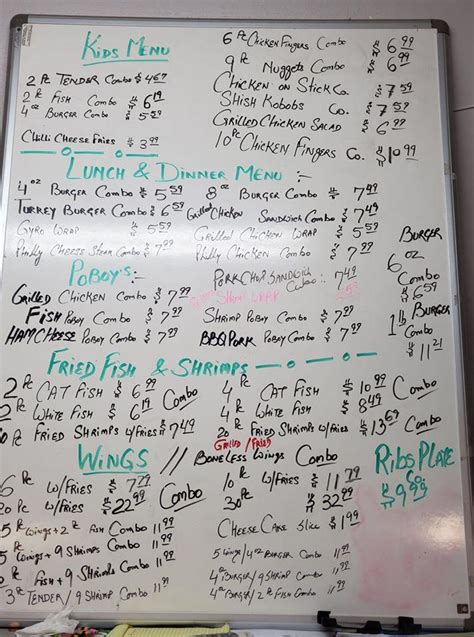 KIDS MENU
2 PC TENDER COMBO $ 4.69
2 PC FISH COMBO $ 6.19
4 OZ BURGER COMBO $ 5.59
CHILLI CHEESE FRIES $ 3.99
6 PC CHICKEN FINGERS COMBO $ 6.99
9 PC NUGGETS COMBO $ 6.99
CHICKEN ON STICK CO. $ 7.59
SHISH KOBOBS CO. $ 7.59
GRILLED CHICKEN SALAD $ 6.99
10 PC CHICKEN FINGERS CO. $ 10.99
LUNCH & DINNER MENU :-
4 OZ BURGER COMBO $ 5.59
8 OZ BURGER COMBO $ 7.49
TURKEY BURGER COMBO $ 6.59
GRILLED CHICKEN SANDWICH COMBO $ 7.49
GYRO WRAP $ 5.59
GRILLED CHICKEN WRAP $ 5.59
PHILLY CHEESE STEAK COMBO $ 7.99
PHILLY CHICKEN COMBO $ 7.99
BURGER
6 OZ
COMBO
$ 6.59
1 lb
BURGER
COMBO
$ 11.21
POBOY'S :-
PORK CHOP SANDWICH COMBO :- 7.49
GRILLED CHICKEN COMBO $ 7.99
WRAP
FISH POBOY COMBO $ 7.99
SHRIMP POBOY COMBO $ 7.99
HAM CHEESE POBOY COMBO $ 7.99
BBQ PORK POBOY COMBO $ 7.99
FRIED FISH & SHRIMPS
2 PC CAT FISH $ 6.99 COMBO
4 PC CAT FISH $ 10.99 COMBO
2 PC WHITE FISH $ 6.19
4 PC WHITE FISH $ 8.49
10 PC FRIED SHRIMPS W/FRIES $ 7.49
20 PC FRIED SHRIMPS W/FRIES $ 13.69 COMBO
GRILLED / FRIED
WINGS // BONELESS WINGS COMBO
6 PC W/FRIES $ 7.99
10 PC W/FRIES $ 11.79
20 PC W/FRIES $ 22.99 COMBO
30 PC $ 32.99
RIBS PLATE
CO.
$ 9.99
CHEESE CAKE SLICE $ 1.99
5 PC WINGS + 2 PC FISH COMBO 11.99
5 PC WINGS + 9 SHRIMPS COMBO 11.99
5 WINGS / 4 OZ BURGER COMBO 11.99
2 PC FISH + 9 SHRIMPS COMBO 11.99
4 OZ BURGER / 9 SHRIMP COMBO 11.99
3 PC TENDER / 9 SHRIMP COMBO 11.99
4 OZ BURGER / 2 PC FISH COMBO 11.99